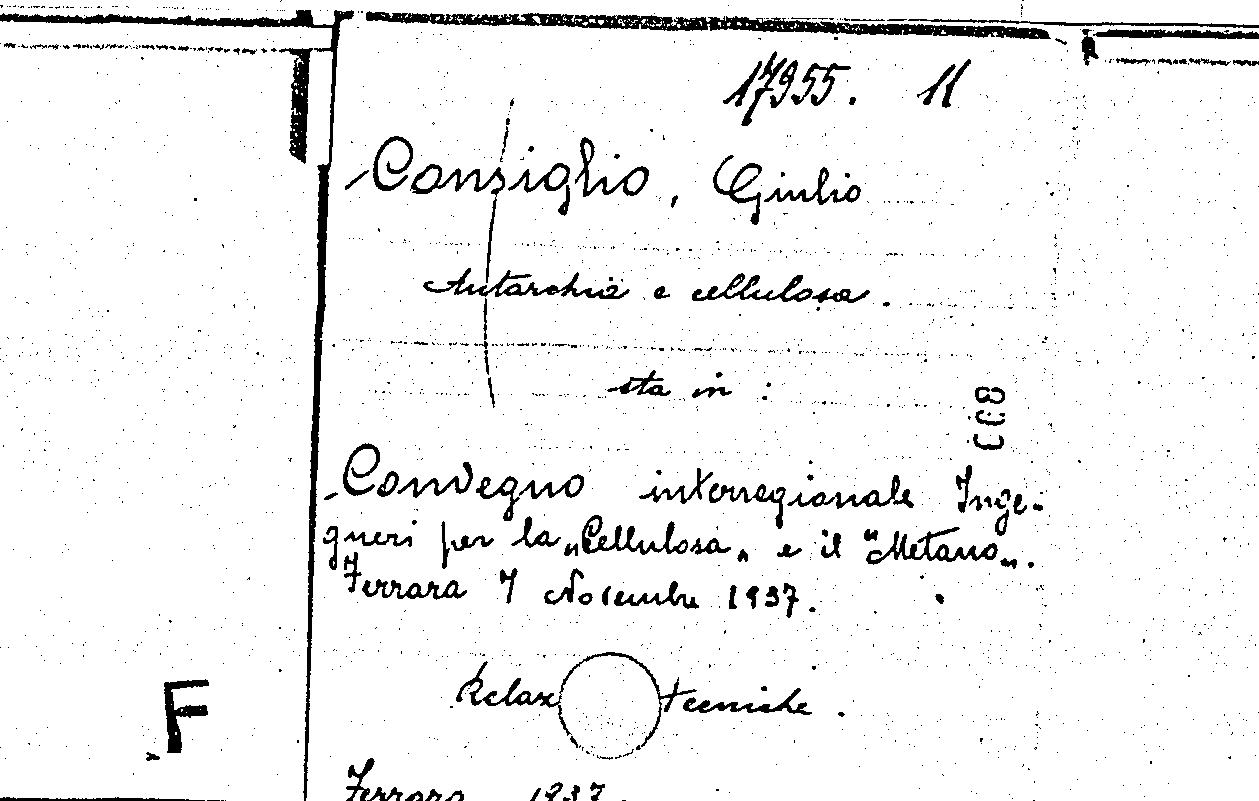 17955. 11
Consiglio, Giulio
Autarchia e cellulosa.
sta in :
Convegno interregionale Inge-
gneri per la „Cellulosa„ e il "Metano„.
Ferrara 7 Novembre 1937.
Relaz tecniche.
F
Ferrara 1937.